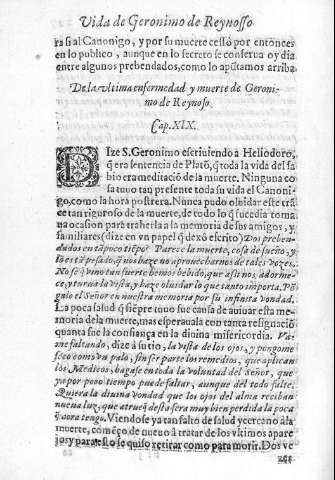 Vida de Geronimo de Reynosso
ra si al Canonigo, y por su muerte cessò por entonces
en lo publico, aunque en lo secreto se conserua oy dia
entre algunos prebendados, como lo apũtamos arriba.
De la vltima enfermedad y muerte de Geroni-
mo de Reynoso.
Cap. XIX.
DIze S. Geronimo escriuiendo a Heliodoro,
q̃ era sentencia de Platõ, q̃ toda la vida del sa-
bio era meditaciõ de la muerte. Ninguna co
sa tuuo tan presente toda su vida el Canoni
go, como la hora postrera. Nunca pudo oluidar este trã
ce tan riguroso de la muerte, de todo lo q̃ sucedia toma
ua ocasion para traherla a la memoria de sus amigos, y
familiares (dize en vn papel q̃ dexò escrito) Dos preben-
dados en tã poco tiẽpo? Parece la muerte, cosa de sueño, y
lo està pesado, q̃ nos haze no aprouecharnos de tales vozes.
No sè q̃ vino tan fuerte hemos bebido, que assi nos adorme-
ce, y turua la vista, y haze oluidar lo que tanto importa. Põ
galo el Señor en nuestra memoria por su infinita vondad.
La poca salud q̃ siẽpre tuuo fue causa de auiuar esta me
moria de la muerte, mas esperauala con tanta resignaciõ
quanta fue la confiança en la diuina misericordia. Va-
me faltando, dize à su tio, la vista de los ojos, y pongome
seco como vn palo, sin ser parte los remedios, que aplican
los Medicos, hagase en todo la voluntad del Señor, que
yo por poco tiempo puede faltar, aunque del todo falte.
Quiera la diuina vondad que los ojos del alma reciban
nueua luz, que a trueq̃ desta sera muy bien perdida la poca
q̃ aora tengo. Viendose ya tan falto de salud y cercano à la
muerte, comẽçò de nueuo à tratar de los vltimos apare
jos y para esto se quiso retirar como para morir. Dos ve